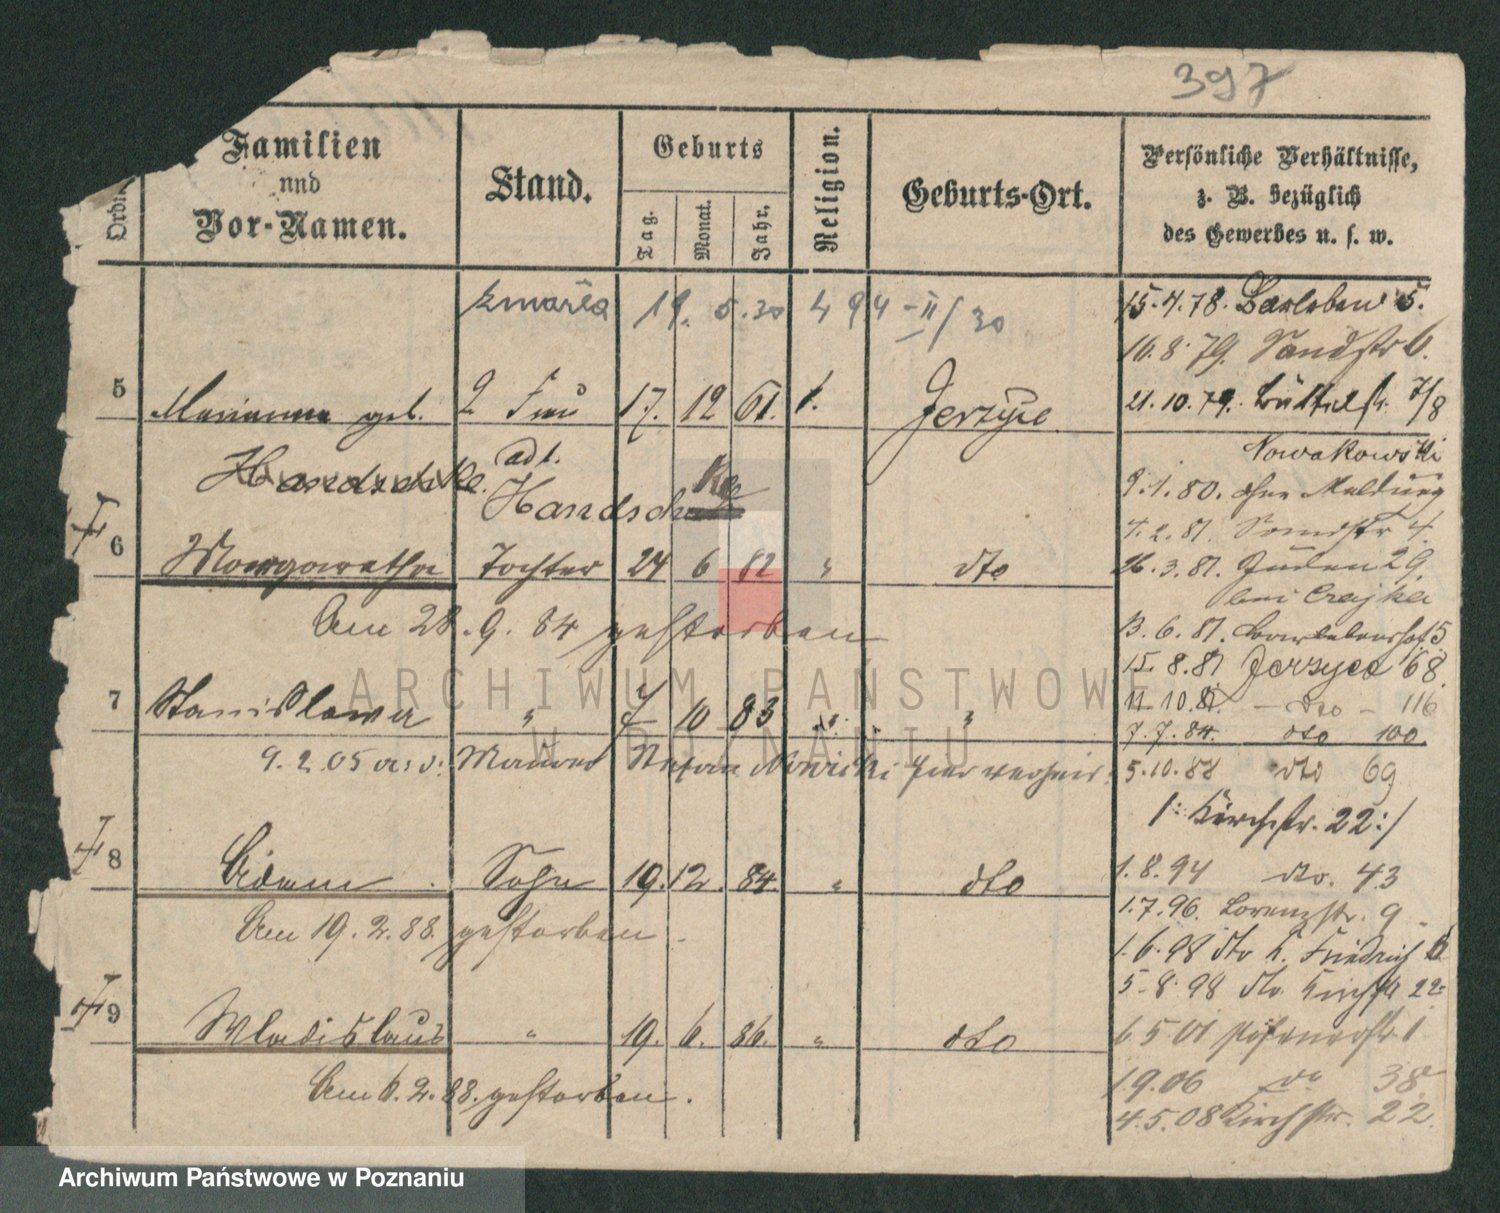 397
Familien
und
Vor-Namen.
Stand.
Geburts
Tag.
Monat.
Jahr.
Religion.
Geburts-Ort.
Persönliche Verhältnisse,
z. B. bezüglich
des Gewerbes u. s. w.
zmarła 19. 5. 30 494-II/30
15.4.78. Barleben 5.
10.8.79. Sandstr 6.
5 Marianna geb. 2 Frau 17. 12 61. Jerzyce
21.10.79. Büttelstr. 7/8
Handschke. adt.
Handschke
Nowakowski
9.1.80. ohne Meldung
4.2.81. Sandstr 4.
6 Margaretha Tochter 24 6 82 " dto
26.3.81. Juden 29.
bei Crajka
Am 28.9.84 gestorben
13.6.81. Barlebenshof 5
15.8.81 Jerzyce 68.
7 Stanislawa " 7 10 83 " "
11.10.81. - dto - 116
7.7.84. dto 100.
9.2.05 a. d. Maurer Stefan Nowicki hier verheir.
5.10.88 dto 69
/: Kirchstr. 22 :/
8 Adam Sohn 19. 12. 84. " dto
1.8.94 dto. 43
1.7.96. Lorenzstr. 9
Am 19.2.88. gestorben.
1.6.98 dto b. Friedrich
5.8.98 dto. Kirchstr 22
9 Wladislaus " 19. 6. 86. " dto
6 5 01 Posenerstr 1
1.9.06 do 38
Am 6.2.88. gestorben.
4.5.08 Kirchstr. 22
ARCHIWUM PAŃSTWOWE
W POZNANIU
Archiwum Państwowe w Poznaniu